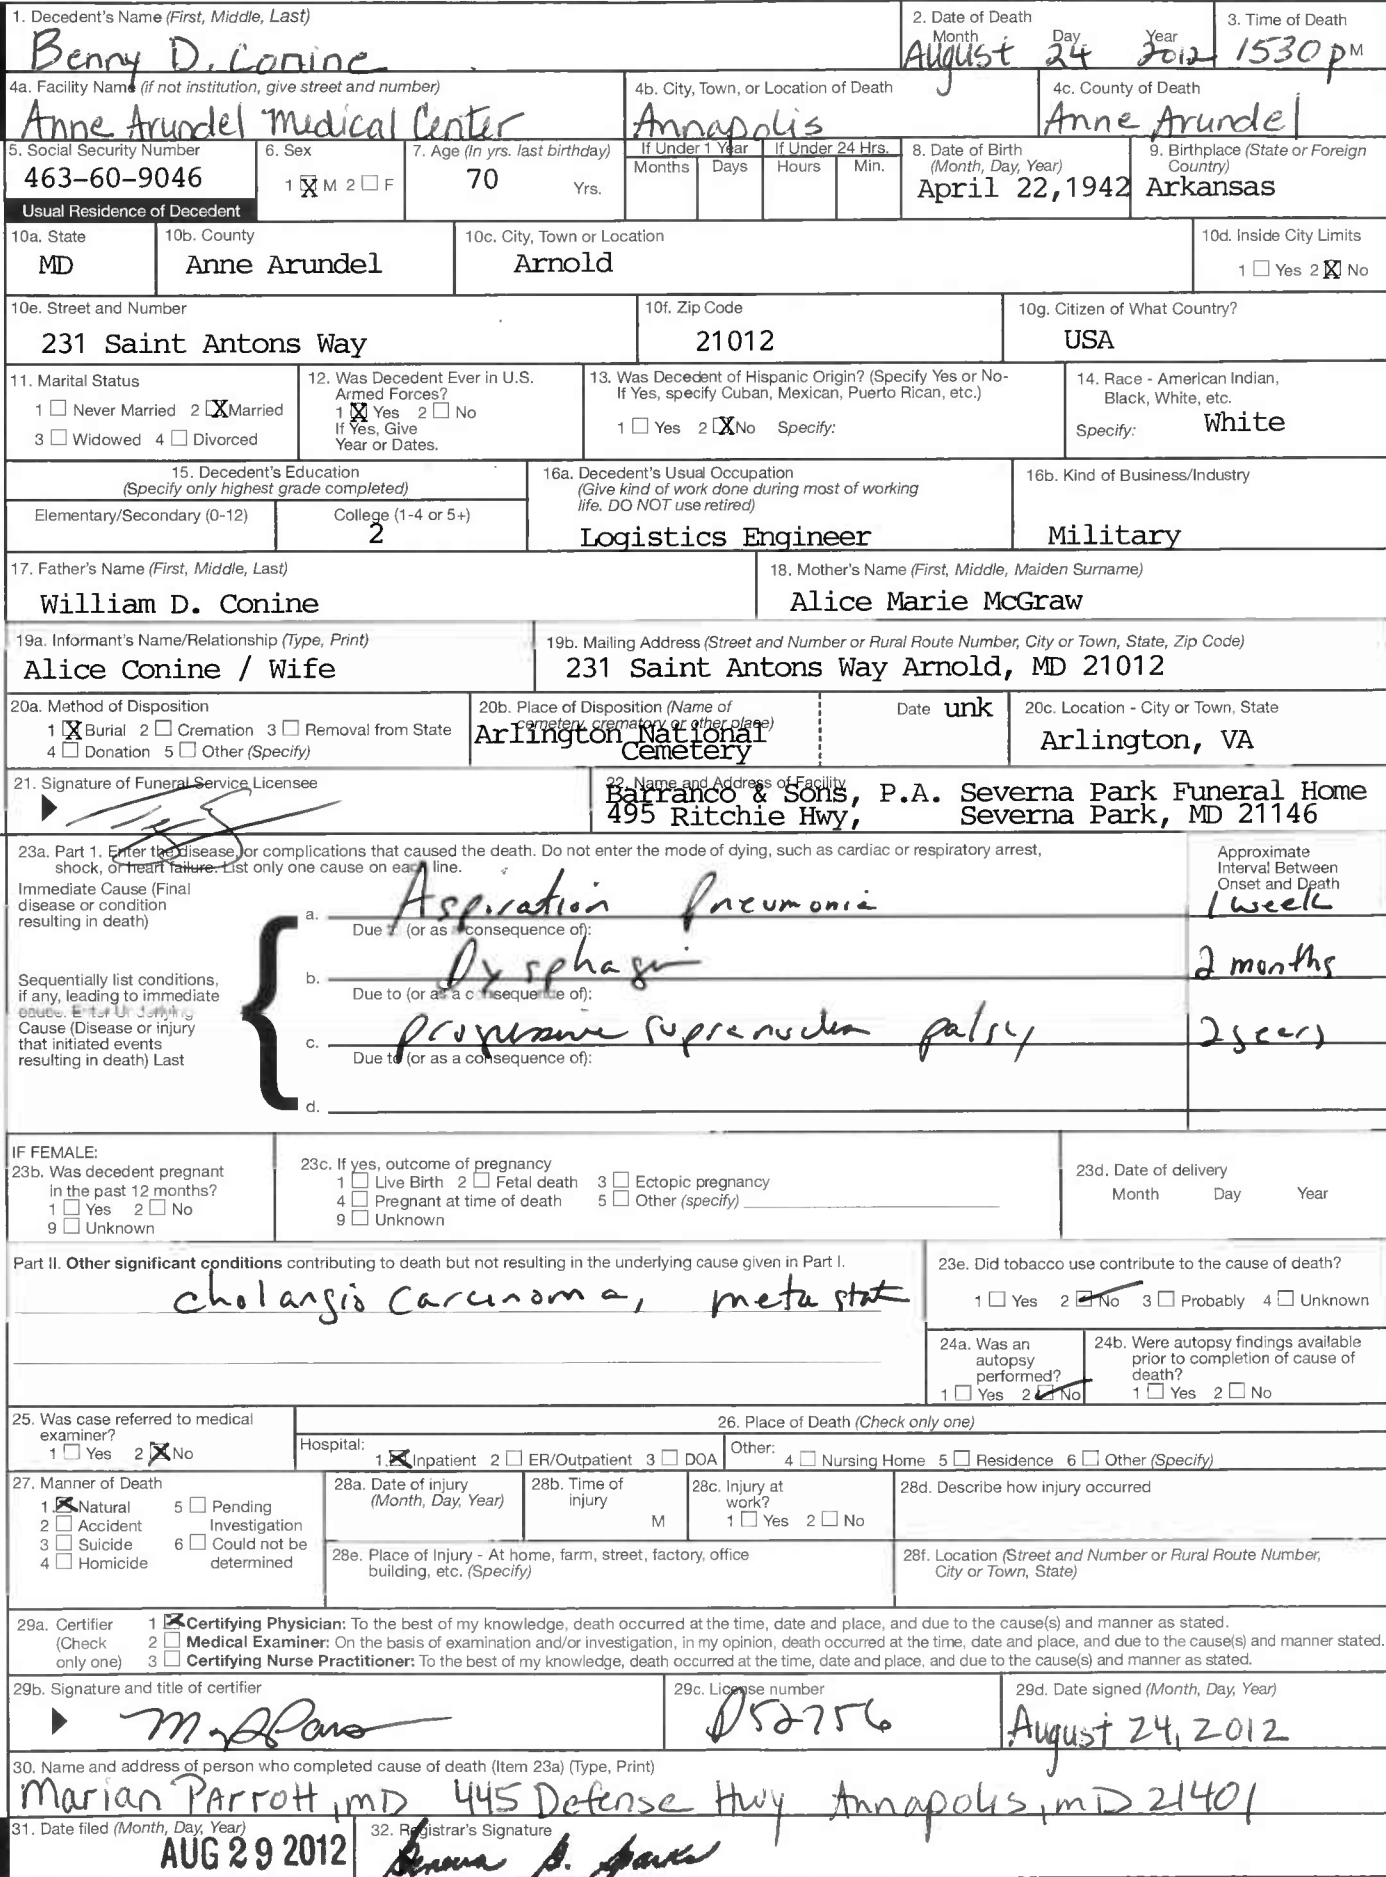 1. Decedent's Name (First, Middle, Last)
Benny D. Conine
2. Date of Death
Month Day Year
August 24 2012
3. Time of Death
1530 p M
4a. Facility Name (if not institution, give street and number)
Anne Arundel Medical Center
4b. City, Town, or Location of Death
Annapolis
4c. County of Death
Anne Arundel
5. Social Security Number
463-60-9046
6. Sex
1 X M 2 ☐ F
7. Age (In yrs. last birthday)
70 Yrs.
If Under 1 Year
Months Days
If Under 24 Hrs.
Hours Min.
8. Date of Birth
(Month, Day, Year)
April 22,1942
9. Birthplace (State or Foreign
Country)
Arkansas
Usual Residence of Decedent
10a. State
MD
10b. County
Anne Arundel
10c. City, Town or Location
Arnold
10d. Inside City Limits
1 ☐ Yes 2 X No
10e. Street and Number
231 Saint Antons Way
10f. Zip Code
21012
10g. Citizen of What Country?
USA
11. Marital Status
1 ☐ Never Married 2 X Married
3 ☐ Widowed 4 ☐ Divorced
12. Was Decedent Ever in U.S.
Armed Forces?
1 X Yes 2 ☐ No
If Yes, Give
Year or Dates.
13. Was Decedent of Hispanic Origin? (Specify Yes or No-
If Yes, specify Cuban, Mexican, Puerto Rican, etc.)
1 ☐ Yes 2 X No Specify:
14. Race - American Indian,
Black, White, etc.
Specify: White
15. Decedent's Education
(Specify only highest grade completed)
Elementary/Secondary (0-12)
College (1-4 or 5+)
2
16a. Decedent's Usual Occupation
(Give kind of work done during most of working
life. DO NOT use retired)
Logistics Engineer
16b. Kind of Business/Industry
Military
17. Father's Name (First, Middle, Last)
William D. Conine
18. Mother's Name (First, Middle, Maiden Surname)
Alice Marie McGraw
19a. Informant's Name/Relationship (Type, Print)
Alice Conine / Wife
19b. Mailing Address (Street and Number or Rural Route Number, City or Town, State, Zip Code)
231 Saint Antons Way Arnold, MD 21012
20a. Method of Disposition
1 X Burial 2 ☐ Cremation 3 ☐ Removal from State
4 ☐ Donation 5 ☐ Other (Specify)
20b. Place of Disposition (Name of
cemetery, crematory or other place)
Arlington National
Cemetery
Date unk
20c. Location - City or Town, State
Arlington, VA
21. Signature of Funeral Service Licensee
22. Name and Address of Facility
Barranco & Sons, P.A. Severna Park Funeral Home
495 Ritchie Hwy, Severna Park, MD 21146
23a. Part 1. Enter the disease, or complications that caused the death. Do not enter the mode of dying, such as cardiac or respiratory arrest,
shock, or heart failure. List only one cause on each line.
Approximate
Interval Between
Onset and Death
Immediate Cause (Final
disease or condition
resulting in death)
a. Aspiration Pneumonia 1 week
Due to (or as a consequence of):
Sequentially list conditions,
if any, leading to immediate
cause. Enter Underlying
Cause (Disease or injury
that initiated events
resulting in death) Last
b. Dysphagia 2 months
Due to (or as a consequence of):
c. progressive supranuclear palsy 2 years
Due to (or as a consequence of):
d.
IF FEMALE:
23b. Was decedent pregnant
in the past 12 months?
1 ☐ Yes 2 ☐ No
9 ☐ Unknown
23c. If yes, outcome of pregnancy
1 ☐ Live Birth 2 ☐ Fetal death 3 ☐ Ectopic pregnancy
4 ☐ Pregnant at time of death 5 ☐ Other (specify)
9 ☐ Unknown
23d. Date of delivery
Month Day Year
Part II. Other significant conditions contributing to death but not resulting in the underlying cause given in Part I.
cholangio carcinoma, metastat
23e. Did tobacco use contribute to the cause of death?
1 ☐ Yes 2 ☑ No 3 ☐ Probably 4 ☐ Unknown
24a. Was an
autopsy
performed?
1 ☐ Yes 2 ☑ No
24b. Were autopsy findings available
prior to completion of cause of
death?
1 ☐ Yes 2 ☐ No
25. Was case referred to medical
examiner?
1 ☐ Yes 2 X No
26. Place of Death (Check only one)
Hospital:
1 X Inpatient 2 ☐ ER/Outpatient 3 ☐ DOA
Other:
4 ☐ Nursing Home 5 ☐ Residence 6 ☐ Other (Specify)
27. Manner of Death
1 X Natural 5 ☐ Pending
2 ☐ Accident Investigation
3 ☐ Suicide 6 ☐ Could not be
4 ☐ Homicide determined
28a. Date of injury
(Month, Day, Year)
28b. Time of
injury
M
28c. Injury at
work?
1 ☐ Yes 2 ☐ No
28d. Describe how injury occurred
28e. Place of Injury - At home, farm, street, factory, office
building, etc. (Specify)
28f. Location (Street and Number or Rural Route Number,
City or Town, State)
29a. Certifier
(Check
only one)
1 X Certifying Physician: To the best of my knowledge, death occurred at the time, date and place, and due to the cause(s) and manner as stated.
2 ☐ Medical Examiner: On the basis of examination and/or investigation, in my opinion, death occurred at the time, date and place, and due to the cause(s) and manner stated.
3 ☐ Certifying Nurse Practitioner: To the best of my knowledge, death occurred at the time, date and place, and due to the cause(s) and manner as stated.
29b. Signature and title of certifier
29c. License number
D52756
29d. Date signed (Month, Day, Year)
August 24, 2012
30. Name and address of person who completed cause of death (Item 23a) (Type, Print)
Marian Parrott, MD 445 Defense Hwy Annapolis, MD 21401
31. Date filed (Month, Day, Year)
AUG 29 2012
32. Registrar's Signature